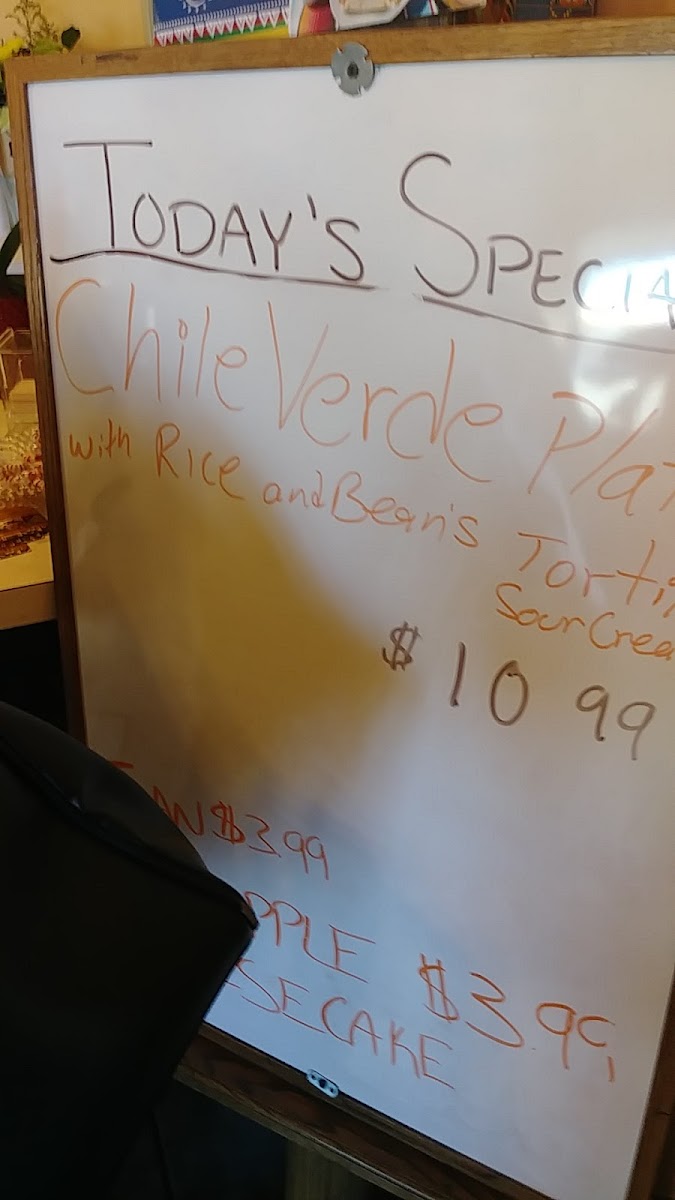 TODAY'S SPECIA
Chile Verde Pla
with Rice and Bean's Torti
Sour Crea
$ 10 99
AN $3.99
PPLE $3.99
SECAKE